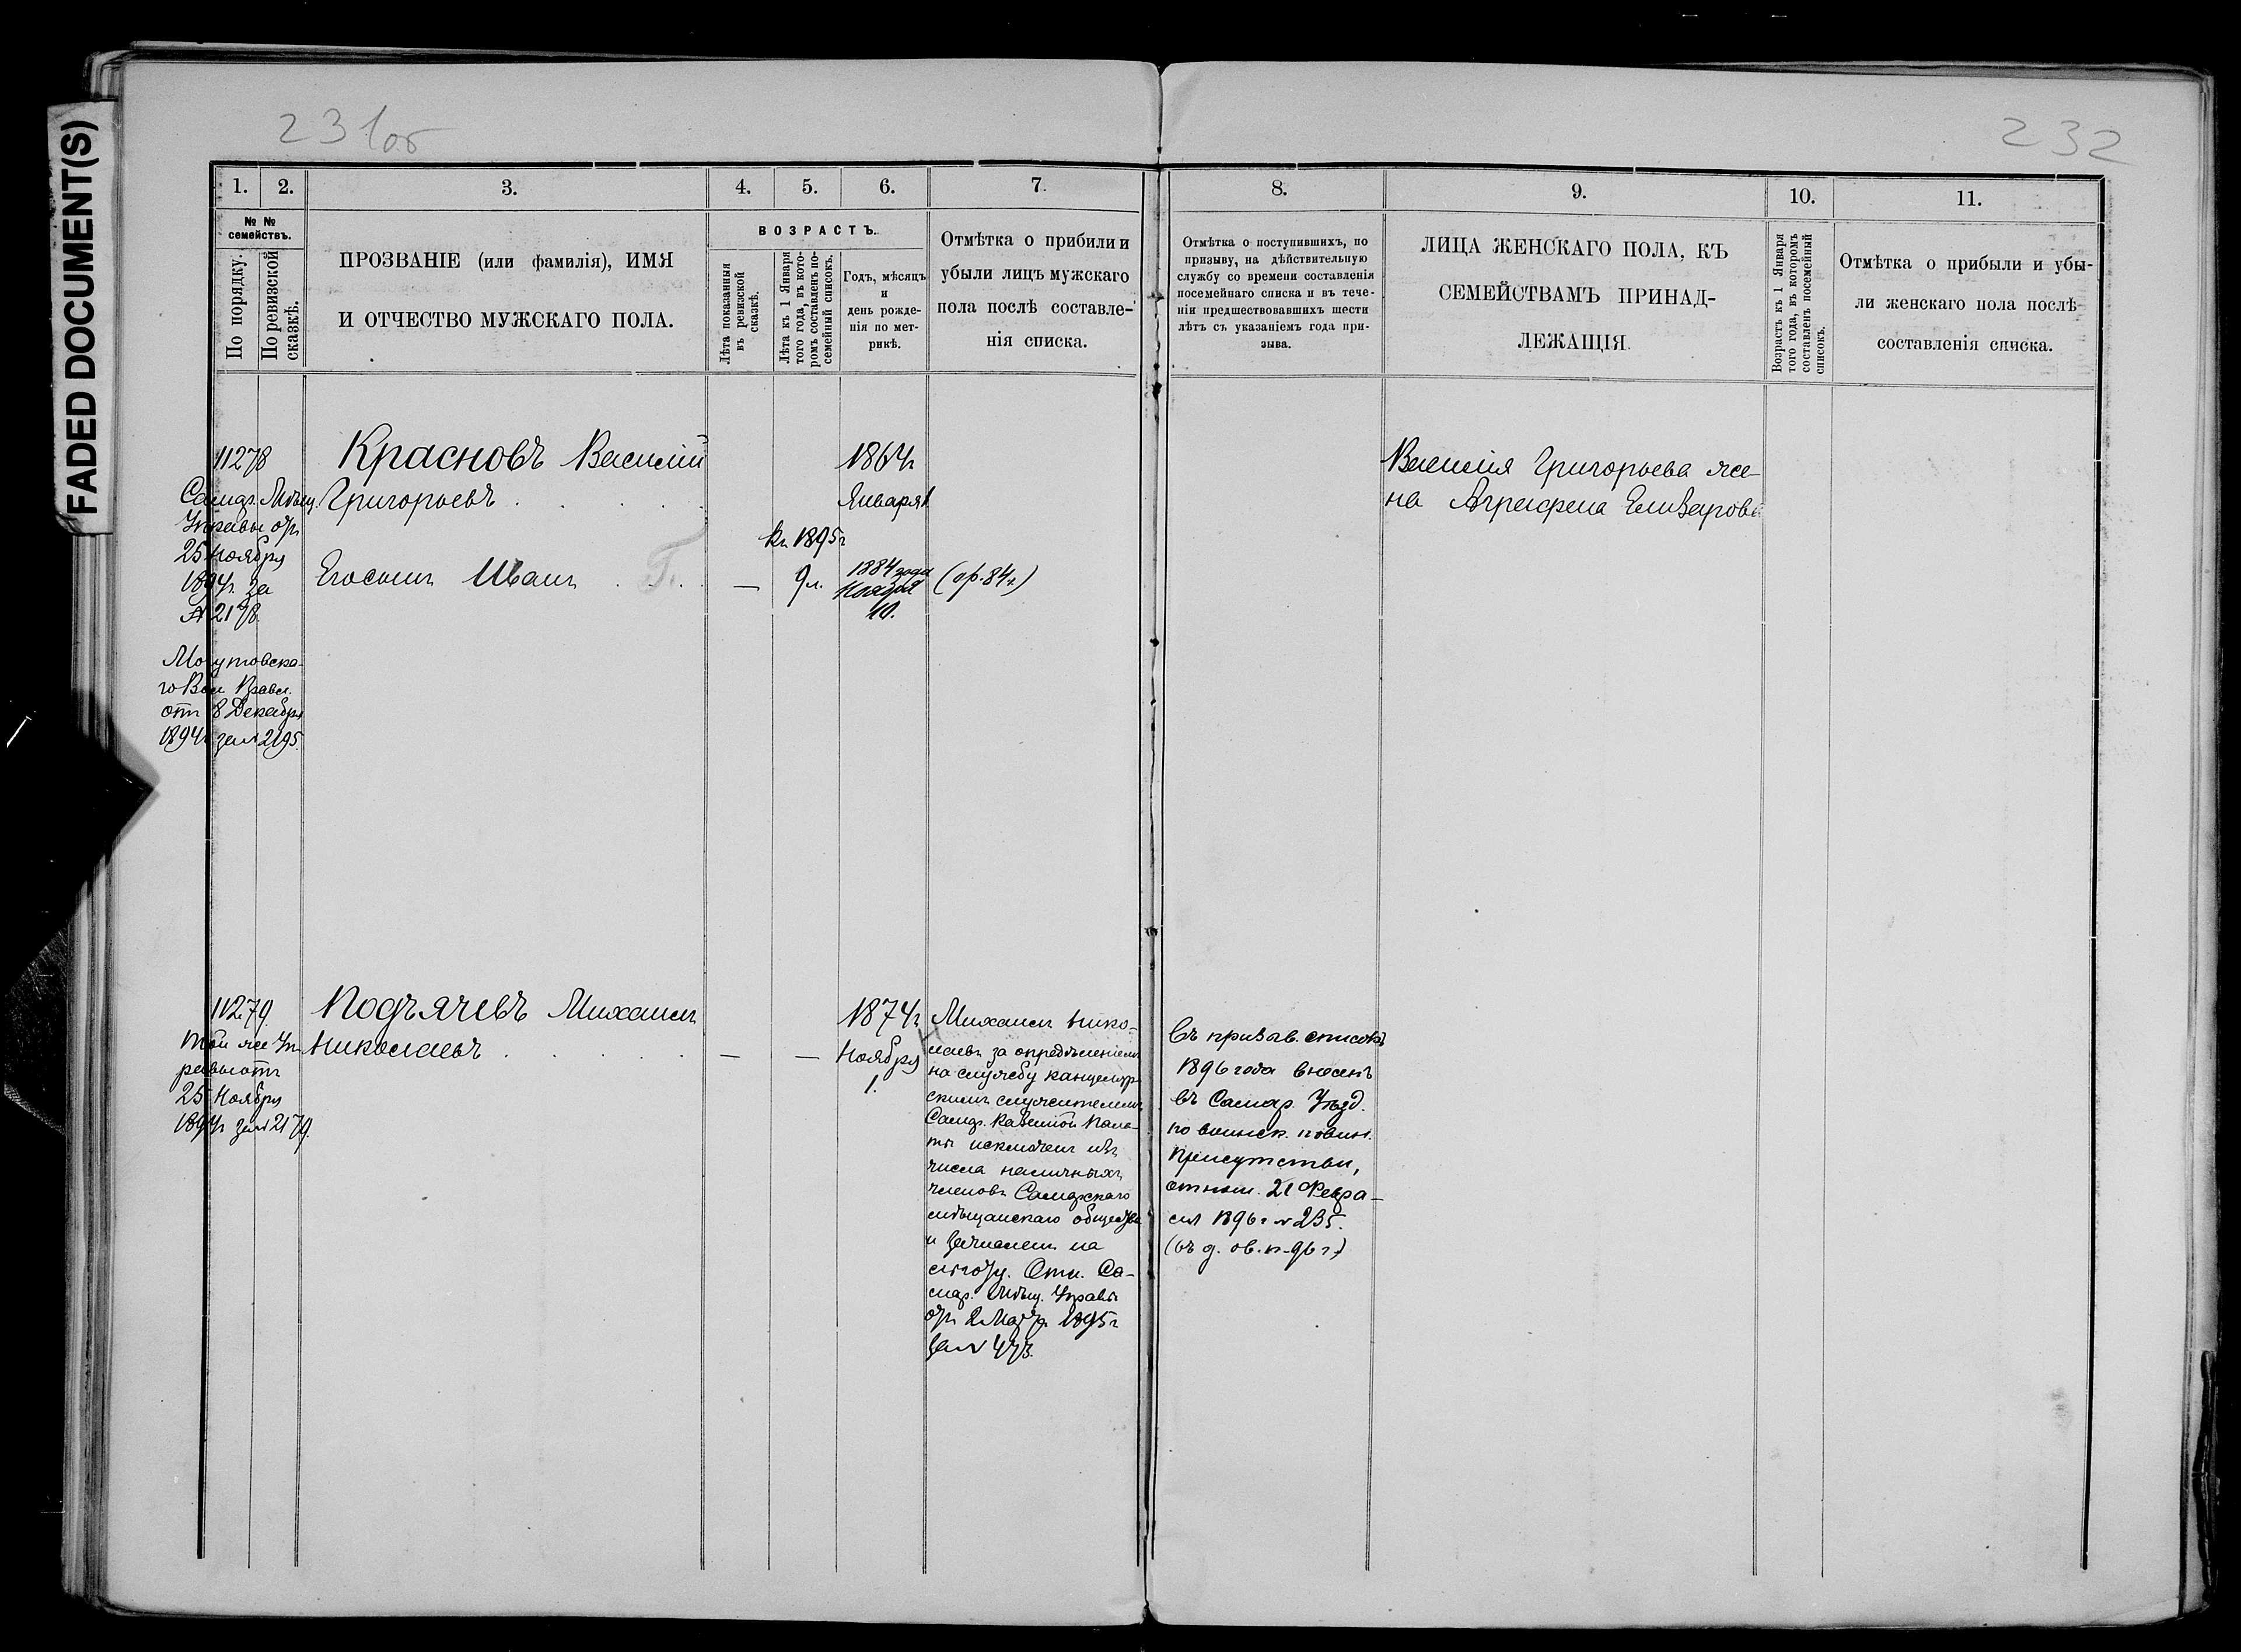 FADED DOCUMENT(S)
231об
232
1.
2.
3.
4.
5.
6.
7.
8.
9.
10.
11.
№ №
семействъ.
По порядку.
По ревизской
сказкѣ.
ПРОЗВАНІЕ (или фамилія), ИМЯ
И ОТЧЕСТВО МУЖСКАГО ПОЛА.
ВОЗРАСТЪ.
Лѣта показанныя
въ ревизской
сказкѣ.
Лѣта къ 1 Января
того года, въ кото-
ромъ составленъ по-
семейный списокъ.
Годъ, мѣсяцъ
и
день рожде-
нія по мет-
рикѣ.
Отмѣтка о прибили и
убыли лицъ мужскаго
пола послѣ составле-
нія списка.
Отмѣтка о поступившихъ, по
призыву, на дѣйствительную
службу со времени составленія
посемейнаго списка и въ тече-
ніи предшествовавшихъ шести
лѣтъ съ указаніемъ года при-
зыва.
ЛИЦА ЖЕНСКАГО ПОЛА, КЪ
СЕМЕЙСТВАМЪ ПРИНАД-
ЛЕЖАЩІЯ.
Возрастъ къ 1 Января
того года, въ которомъ
составленъ посемейный
списокъ.
Отмѣтка о прибыли и убы-
ли женскаго пола послѣ
составленія списка.
11278
Самар. Мѣщ.
Управы отъ
25 Ноября
1894г. за
№ 2178.
Могутовска-
го Вол. Правл.
отъ 8 Декабря
1894г за № 2195.
Красновъ Василій
Григорьевъ . . . .
1864г
Января 1
Къ 1895г
Иванъ
—
9 л.
1884 года
Ноября
10.
(ор. 84г.)
Василія Григорьева же-
на Агрефена Елизарова
11279
Той же Уп-
равы отъ
25 Ноября
1894г за № 2179.
Подъячевъ Михаилъ
Николаевъ . . . . .
—
—
1874г
Ноября
1.
Михаилъ Нико-
лаевъ за опредѣленіемъ
на службу канцеляр-
скимъ служителемъ
Самар. Казенной Пала-
ты исключенъ изъ
числа наличныхъ
членовъ Самарскаго
мѣщанскаго общества
и зачисленъ на
льготу. Отн. Са-
мар. Мѣщ. Управы
отъ 2 Марта 1895г
за № 473.
Въ призыв. списокъ
1896 года внесенъ
въ Самар. Уѣзд.
по воинск. повин.
Присутствіи,
отнош. 21 Февра-
ля 1896г № 235.